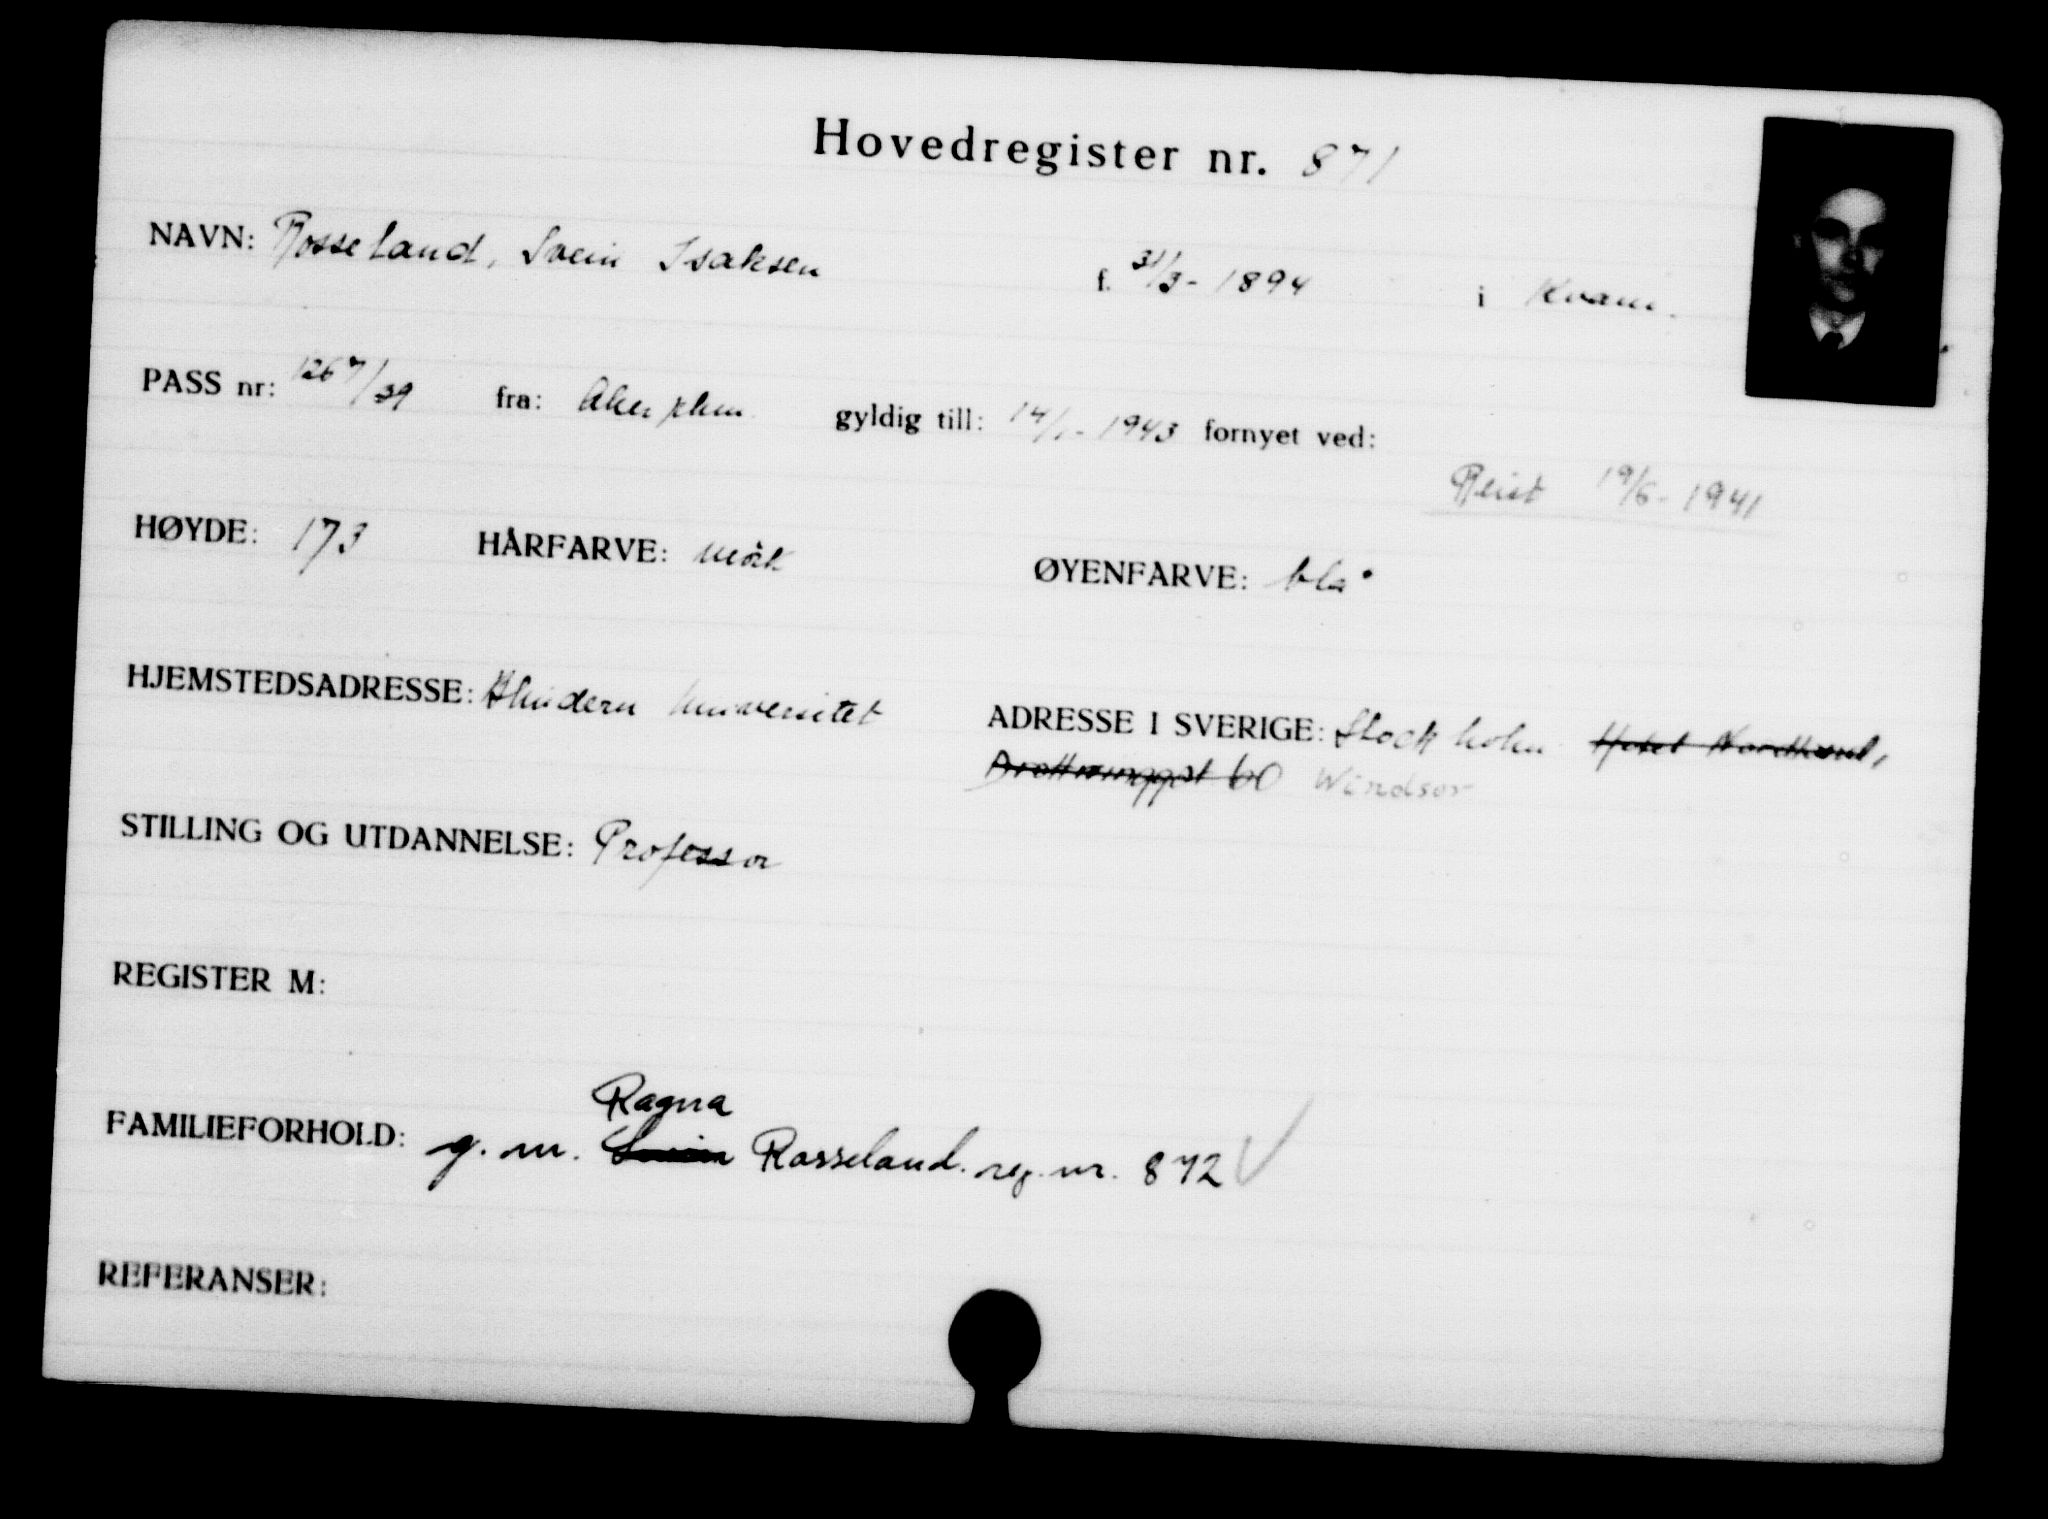 Hovedregister nr. 871
NAVN: Rosseland, Svein Isaksen f. 31/3 - 1894 i Kvam.
PASS nr: 1267/39 fra: Aker pkm. gyldig till: 14/1 - 1943 fornyet ved:
Reist 19/6 - 1941
HØYDE: 173 HÅRFARVE: mörk ØYENFARVE: blå
HJEMSTEDSADRESSE: Blindern Universitet ADRESSE I SVERIGE: Stockholm Hotel
Drottninggat 60 Windsor
STILLING OG UTDANNELSE: Professor
REGISTER M:
Ragna
FAMILIEFORHOLD: g. m. Svein Rosseland. reg. nr. 872 ✓
REFERANSER: